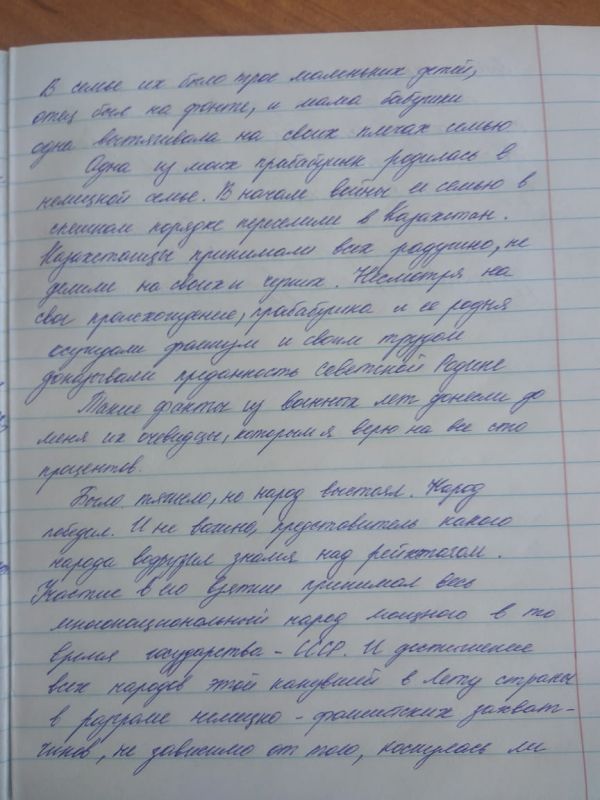 В семье их было трое маленьких детей,
отец был на фронте, и мама бабушки
одна вытягивала на своих плечах семью
Одна из моих прабабушек родилась в
немецкой семье. В начале войны ее семью в
спешном порядке переселили в Казахстан.
Казахстанцы принимали всех радушно, не
делили на своих и чужих. Несмотря на
свое происхождение, прабабушка и ее родня
осуждали фашизм и своим трудом
доказывали преданность советской Родине
Такие факты из военных лет донесли до
меня их очевидцы, которым я верю на все сто
процентов.
Было тяжело, но народ выстоял. Народ
победил. И не важно, представитель какого
народа водрузил знамя над рейхстагом.
Участие в его взятие принимал весь
многонациональный народ мощного в то
время государства - СССР. И достижение
всех народов этой канувшей в Лету страны
в разгроме немецко - фашистских захват-
чиков, не зависимо от того, коснулась ли